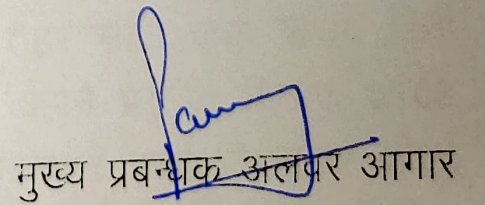 मुख्य प्रबन्धक अलवर आगार